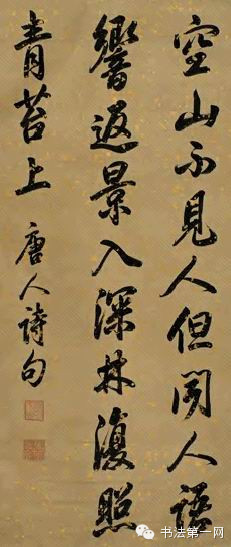 空山不見人但聞人語
響返景入深林復照
青苔上 唐人詩句
书法第一网